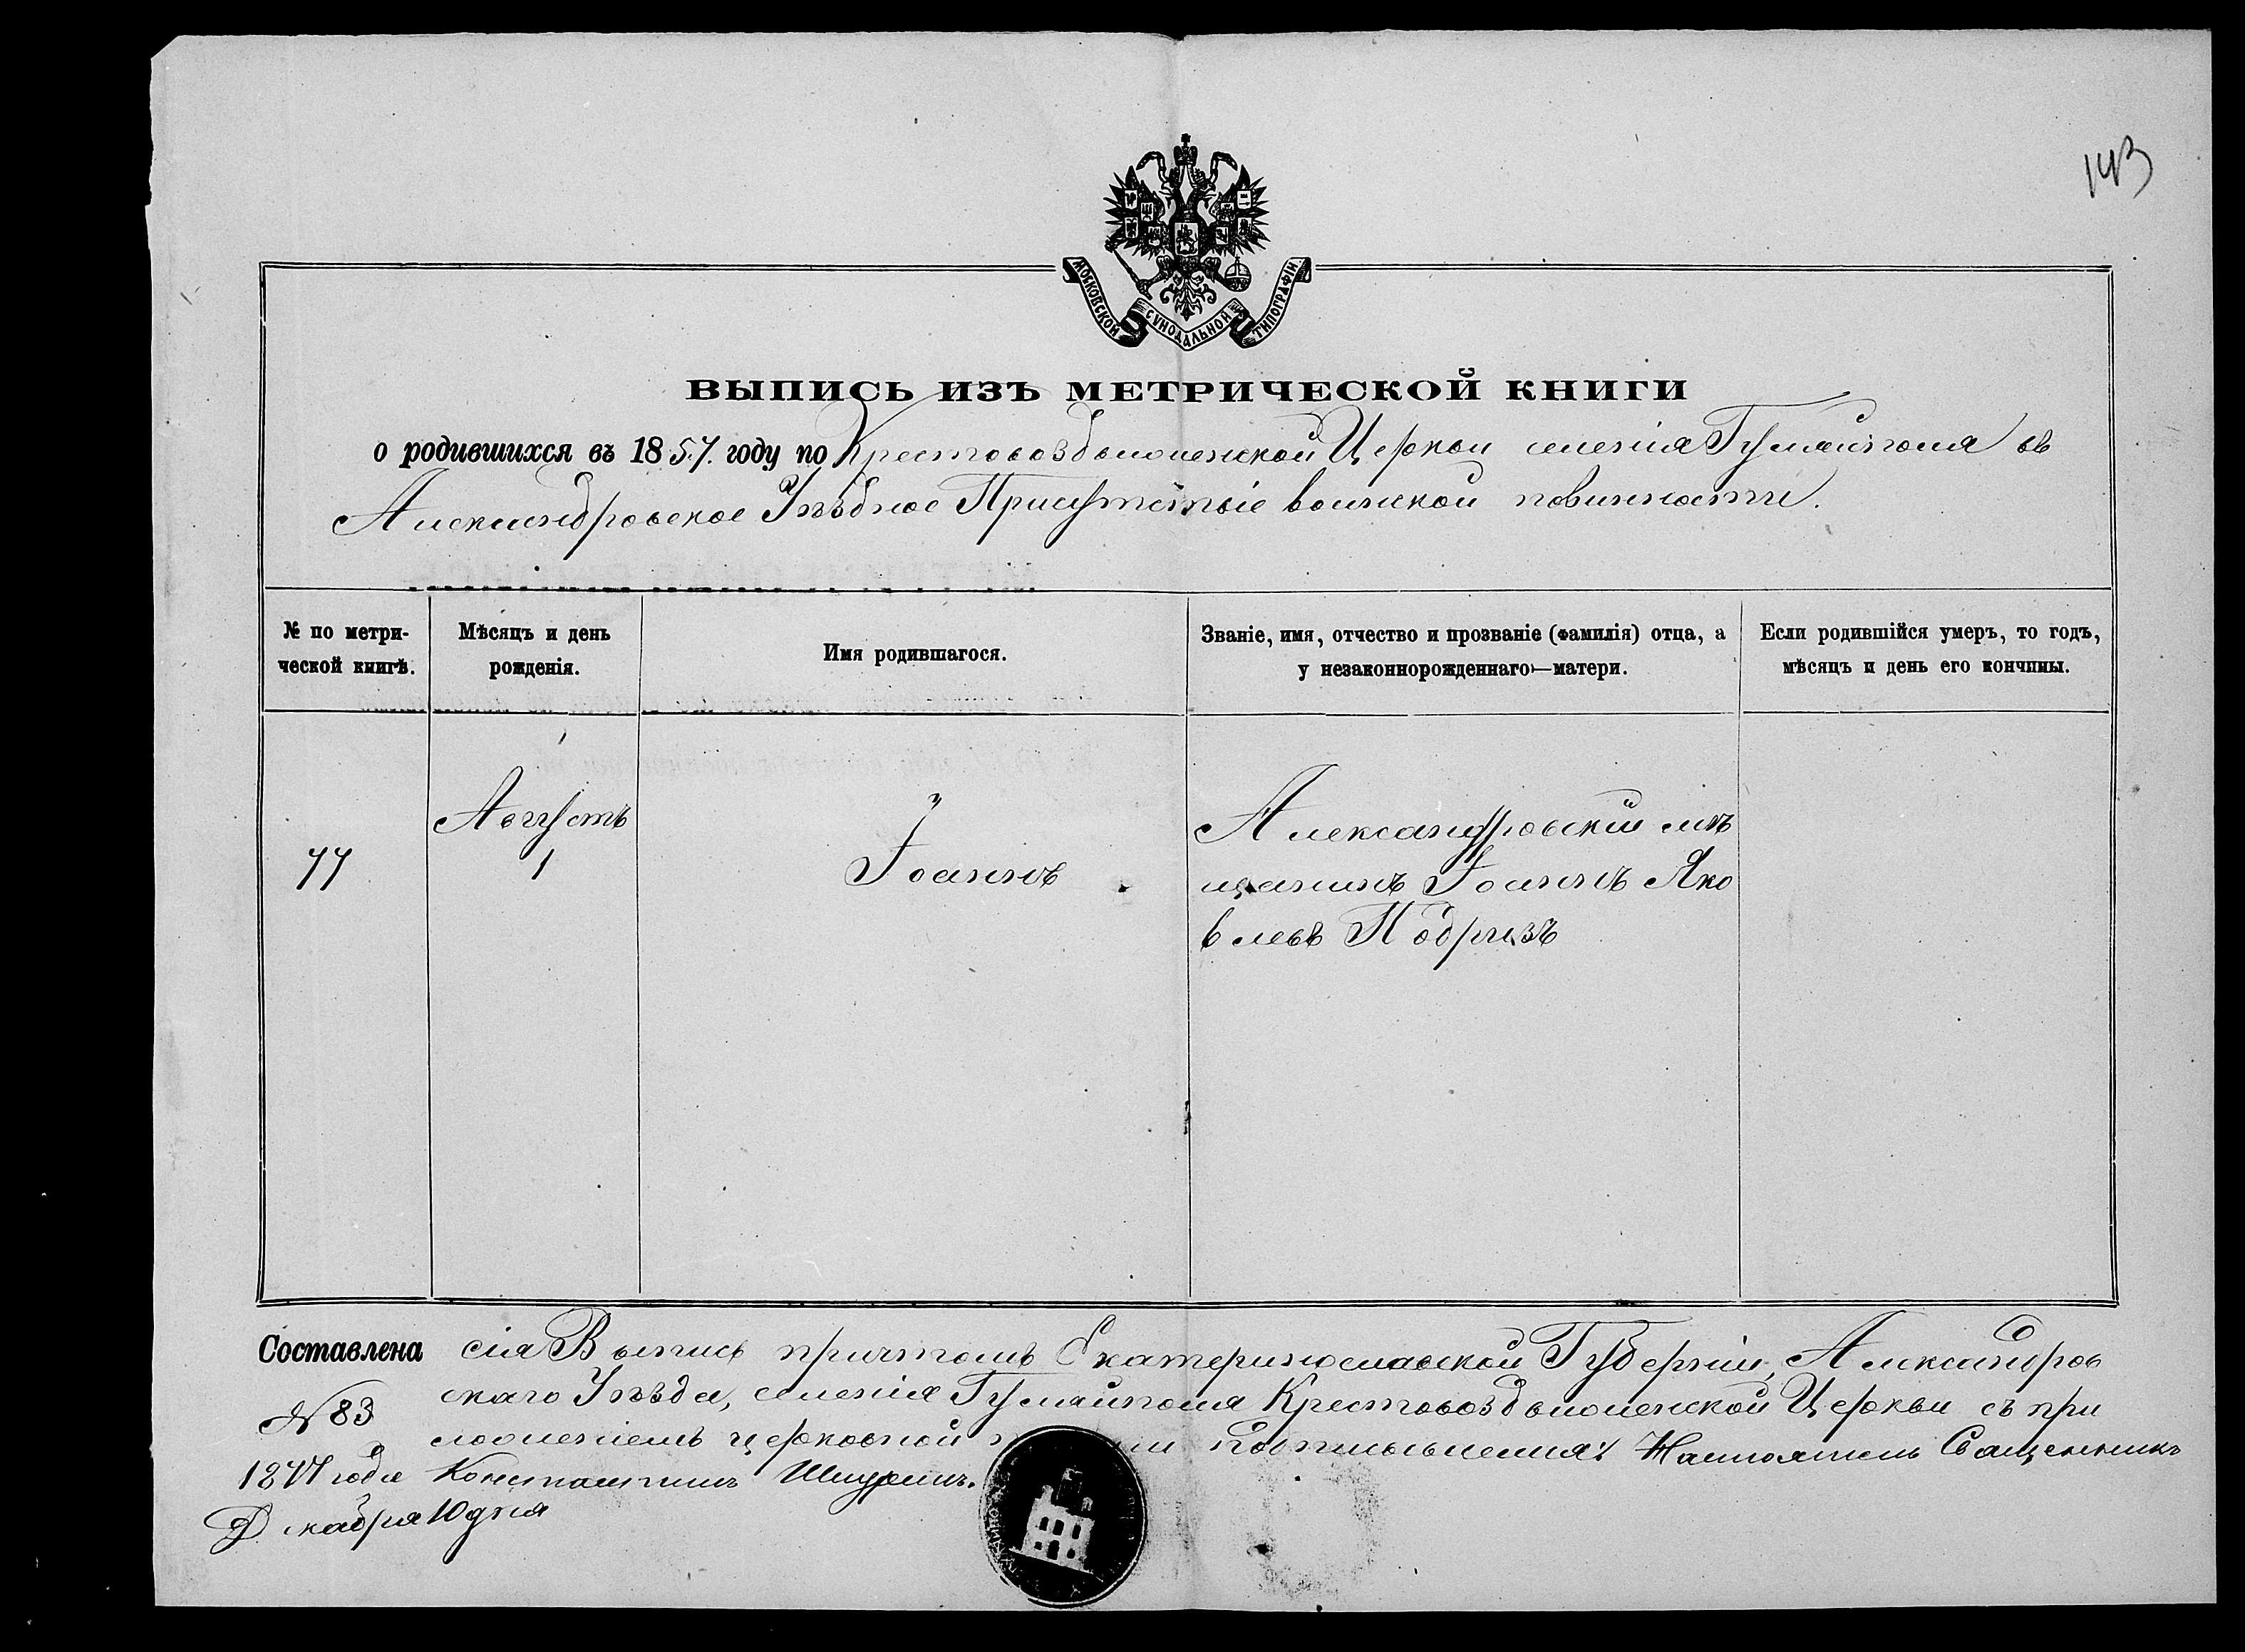 143
МОСКОВСКОЙ СѴНОДАЛЬНОЙ ТИПОГРАФІИ
ВЫПИСЬ ИЗЪ МЕТРИЧЕСКОЙ КНИГИ
о родившихся въ 1857. году по Крестовоздвиженской Церкви селенія Гуляйполя въ
Александровское Уѣздное Присутствіе воинской повинности.
№ по метри-
ческой книгѣ.
Мѣсяцъ и день
рожденія.
Имя родившагося.
Званіе, имя, отчество и прозваніе (фамилія) отца, а
у незаконнорожденнаго—матери.
Если родившійся умеръ, то годъ,
мѣсяцъ и день его кончины.
77
Августъ
1
Іоаннъ
Александровскій мѣ
щанинъ Іоаннъ Яко
влевъ
Составлена сія Выпись причтомъ Екатеринославской Губерніи, Александров
скаго Уѣзда, селенія Гуляйполя Крестовоздвиженской Церкви съ при
ложеніемъ церковной Настоятель Священникъ
Константинъ
№ 83
1877 года
Декабря 10 дня